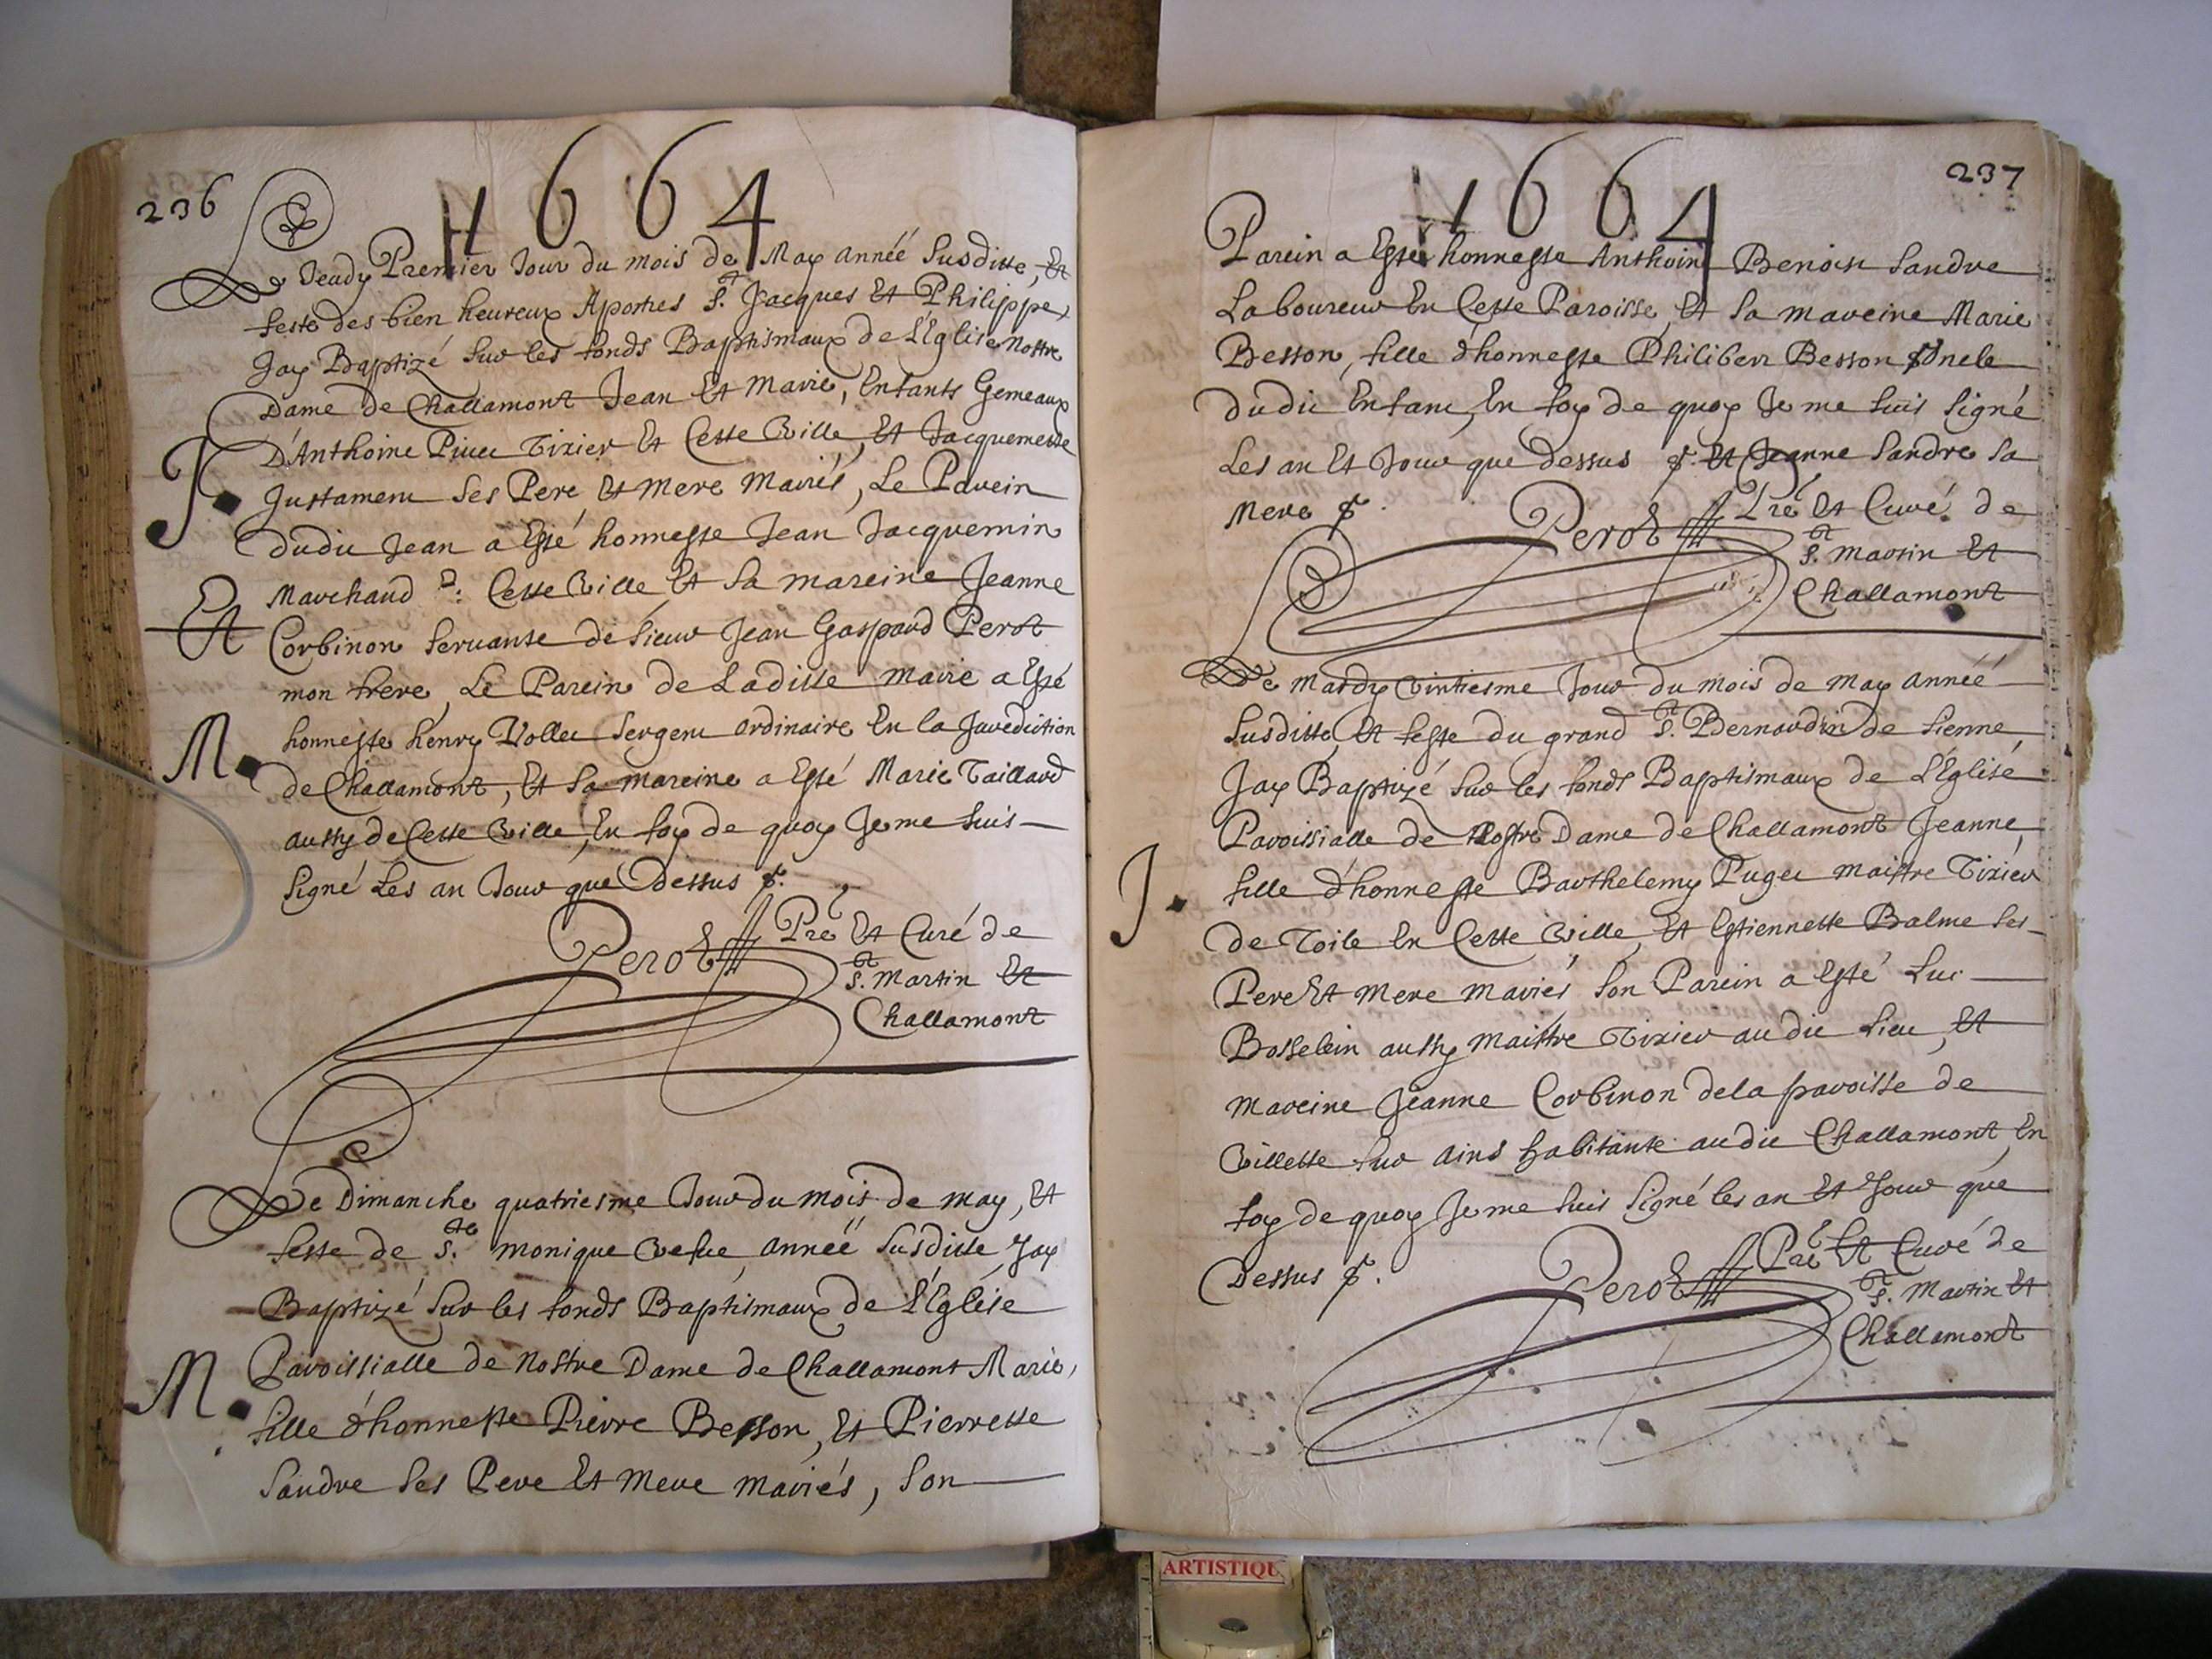 236
1664
Le Jeudy Premier Jour du mois de May année susditte, Et
feste des bien heureux Apostres St. Jacques Et Philippe,
Jay Baptizé sur les fonds Baptismaux de L'Eglise Nostre
Dame de Challamont Jean Et Marie, Enfants Gemeaux
D'Anthoine Tixier Et Cette Ville, Et Jacquemette
J.
Justament ses Pere Et mere Mariés, Le Parein
dudit Jean a Esté honneste Jean Jacquemin
Marchand D: Cette Ville Et sa mareine Jeanne
Et
Corbinon servante de sieur Jean Gaspard Perot
mon frere, Le Parein de Laditte Marie a Esté
honneste henry Vollet sergent ordinaire En la Jurediction
M.
de Challamont, Et sa mareine a Esté Marie Taillard
aussy de Cette Ville, En foy de quoy Je me suis
signé Les an Jour que Dessus
Perot Pre Et Curé de
St. Martin Et
Challamont
Le Dimanche quatriesme Jour du mois de may, Et
feste de Ste. monique vefue, année susditte, Jay
Baptizé sur les fonds Baptismaux de L'Eglise
Paroissialle de Nostre Dame de Challamont Marie,
M.
fille d'honneste Pierre Besson, Et Pierrette
Sandre ses Pere Et Mere mariés, son
237
1664
Parein a Esté honneste Anthoine Benoist Sandre
Laboureur En Cette Paroisse, Et sa mareine Marie
Besson, fille d'honneste Philibert Besson Oncle
dudit Enfant, En foy de quoy Je me suis signé
Les an Et Jour que dessus Et Jeanne Sandre sa
Mere
Perot Pre Et Curé de
St. Martin Et
Challamont
Le Mardy Vintiesme Jour du mois de may année
susditte, Et feste du grand St. Bernardin de sienne,
Jay Baptizé sur les fonds Baptismaux de L'Eglise
Paroissialle de Nostre Dame de Challamont Jeanne,
J.
fille d'honneste Barthelemy Puget maistre Tixier
de Toile En Cette Ville, Et Estiennette Balme ses
Pere Et Mere mariés son Parein a Esté Luc
Bosselein aussy maistre Tixier audit Lieu, Et
mareine Jeanne Corbinon de la paroisse de
Villette sur Ains habitante audit Challamont, En
foy de quoy Je me suis signé les an Et Jour que
Dessus
Perot Pre Et Curé de
St. Martin Et
Challamont
ARTISTIQU